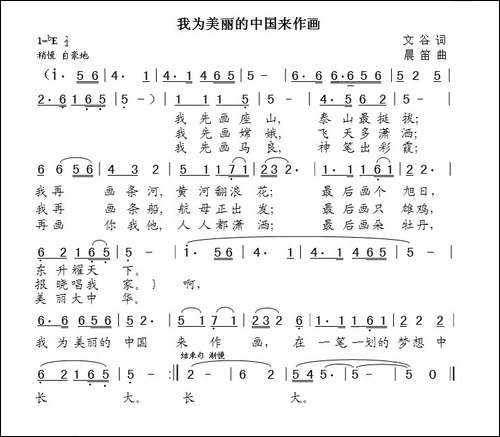 我为美丽的中国来作画
1=bE 2/4 文谷 词
稍慢 自豪地 晨笛 曲
(i· 5 6 | 4· 1 | 4·1 4 6 5 | 5 - | 6·6 5 6 | 6·5 6 5 | 5 3 0 5 |
2·6 1 6 5 | 5 -) | 6·5 6 5 | 5 - | 6 5 3 5 | 2 - |
我先画座山, 泰山最挺拔;
我先画嫦娥, 飞天多潇洒;
我先画马良, 神笔出彩霞;
6 6 5 6 | 4 3 2 | 5 5 1 7 1 | 2 3 2 6 | 6 6 5 6 | 4 3 2 |
我再画条河, 黄河翻浪花; 最后画个旭日,
我再画条船, 航母正出发; 最后画只雄鸡,
再画你我他, 人人都潇洒; 最后画朵牡丹,
6 2 1 6 5 | 5 - | i· 5 6 | 4· 1 | 4·1 4 6 5 | 5 - |
东升耀天下。
报晓唱我家。} 啊,
美丽大中华。
6·6 5 6 | 6 5 6 5 | 5 2· | 5·1 7 1 | 2 3 2 6 | 6·6 1 6 5 | 2 2 2 |
我为美丽的中国来作画, 在一笔一划的梦想中
结束句 渐慢
6 2 1 6 5 | 5 - :| 2 - | 6 6 2 | 5 4 5· | 5 - | 5 0 ‖
长大。长大。